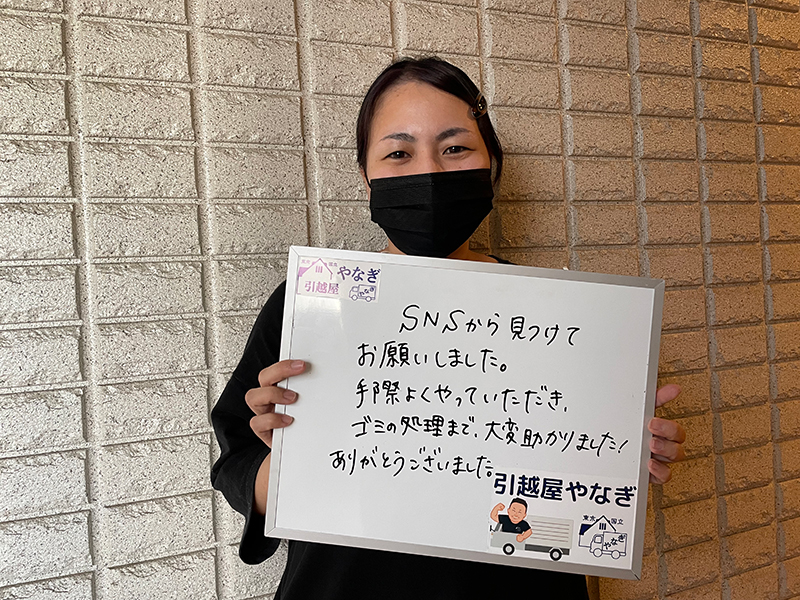 東京 国立
やなぎ
引越屋
やなぎ
SNSから見つけて
お願いしました。
手際よくやっていただき、
ゴミの処理まで、大変助かりました!
ありがとうございました。
引越屋やなぎ
東京 国立
やなぎ